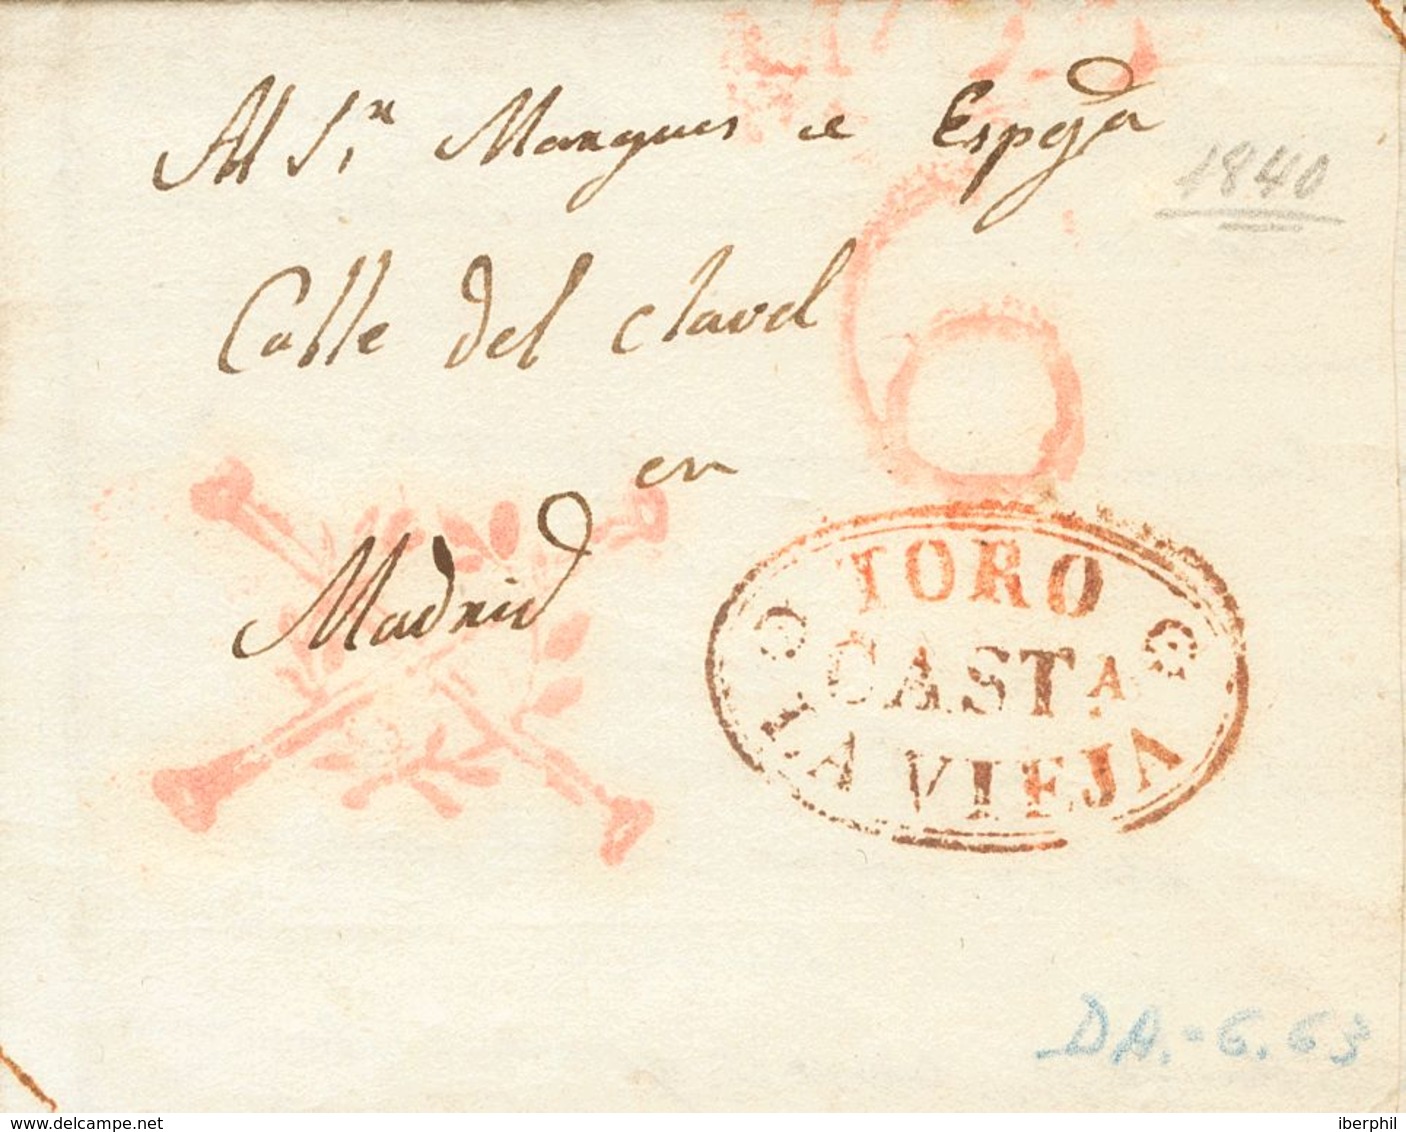 Al S.n Marques de Espeja
1840
Calle del clavel
6
en
Madrid
TORO
CASTA
LLA VIEJA
DA.=6.63
www.delcampe.net
iberphil